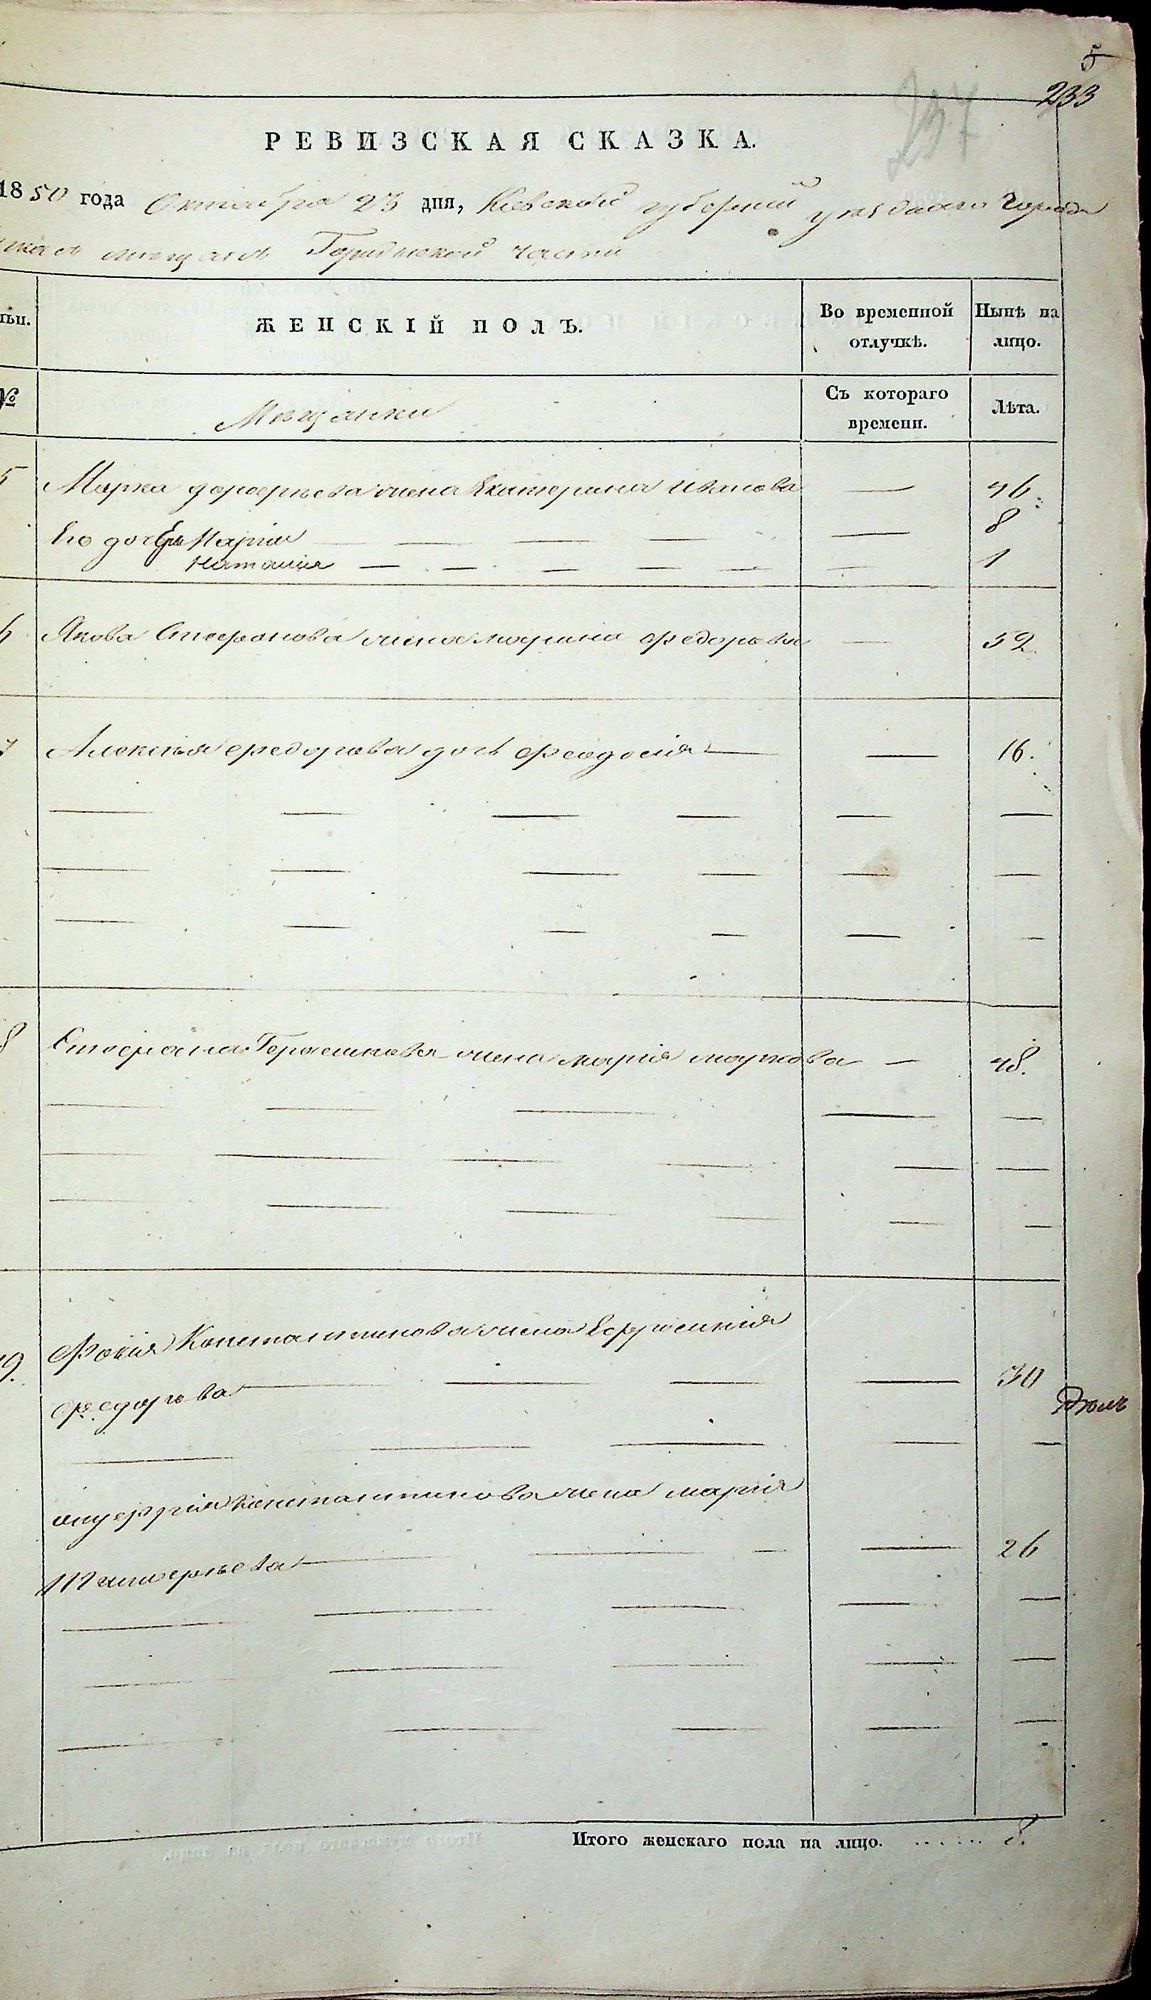 5
233
237
РЕВИЗСКАЯ СКАЗКА.
1850 года Октября 23 дня, Кіевской губерній уезднаго города
мещанъ части
ЖЕНСКІЙ ПОЛЪ. Во временной отлучкѣ. Нынѣ на лицо.
№ Мещанки Съ котораго времени. Лѣта.
5 Марка дорофеева жена Екатерина Иванова — 46.
Его дочери Марія — — — — 8
Наталия — — — — — — 1
6 Якова Стефанова жена марина федорова — 52.
7 Алексея федорова дочь феодосия — — 16.
8 Стефана Герасимова жена марія маркова — 48.
9. Фокія Константинова жена Евфросинія
федорова — — — — 30
онуфрія Константинова жена марія
Тимофеева — — — — 26
Итого женскаго пола на лицо. 8.